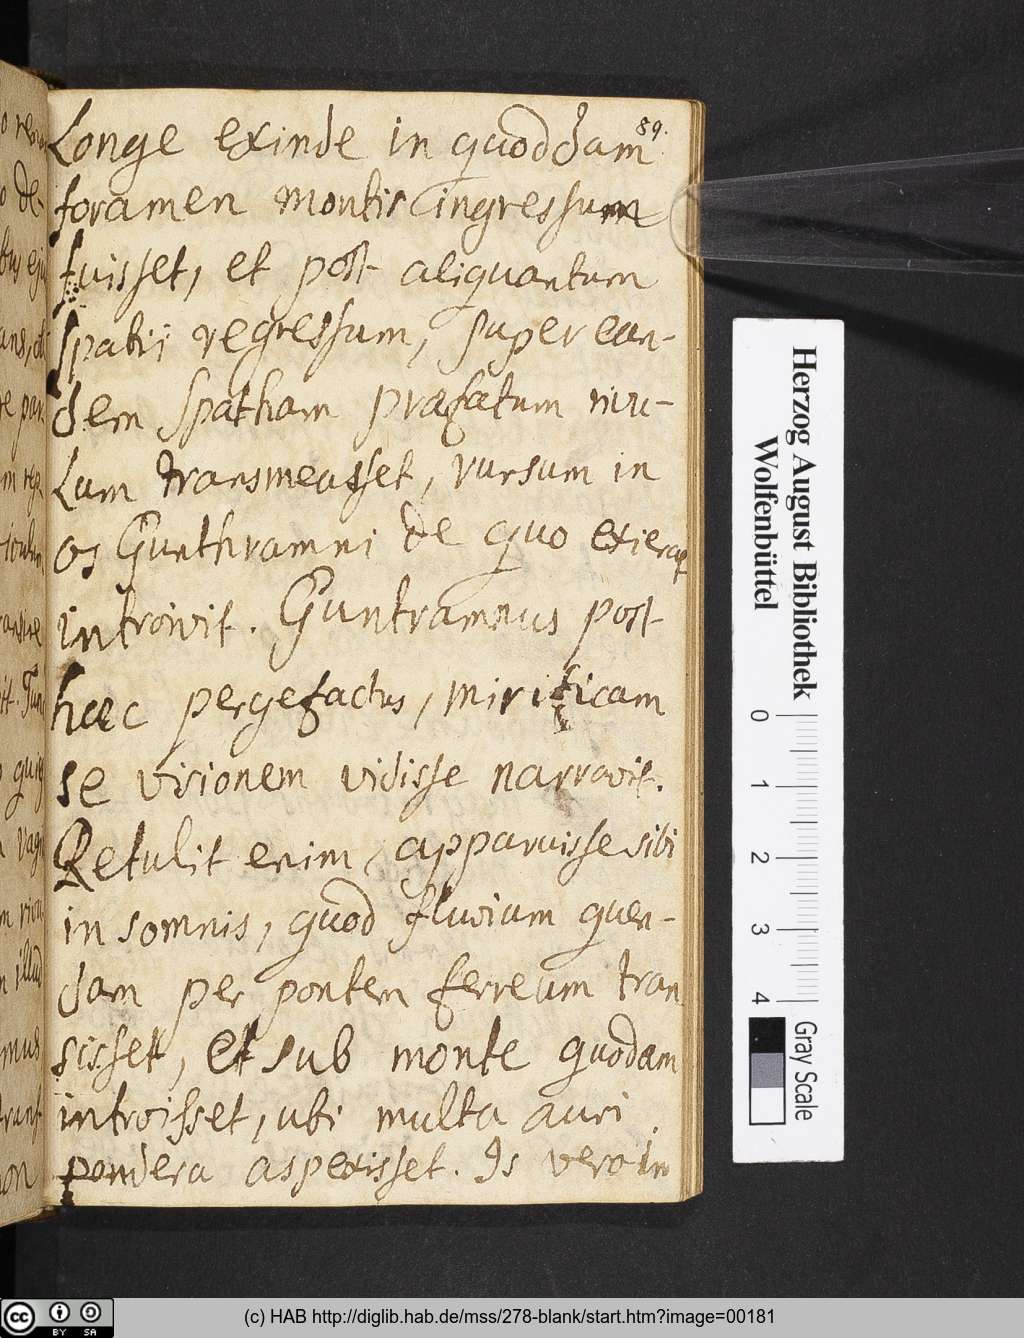 89.
Longe exinde in quoddam
foramen montis ingressum
fuisset, et post aliquantum
spatii regressum, super ean-
dem spatham præfatum rivu-
lum transmeasset, rursum in
os Gunthramni de quo exierat
introivit. Guntramnus post
hæc pergefactus, mirificam
se visionem vidisse narravit.
Retulit enim, apparuisse sibi
in somnis, quod fluvium quen-
dam per pontem ferreum tran
sisset, et sub monte quodam
introisset, ubi multa auri
pondera aspexisset. Is vero in
Herzog August Bibliothek
Wolfenbüttel
0 1 2 3 4
Gray Scale
cc BY SA
(c) HAB http://diglib.hab.de/mss/278-blank/start.htm?image=00181